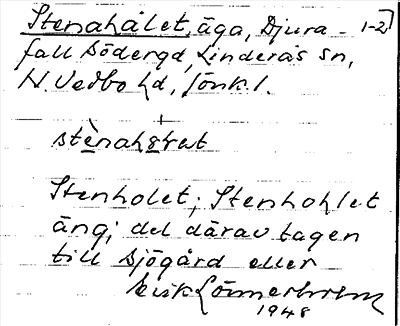 Stenahålet, äga, Djura- 1-2]
fall Södergd, Linderås sn,
N. Vedbo hd, Jönk. l.
stènahøłæt
Stenholet; Stenhohlet
äng; del därav tagen
till Sjögård eller
Erik Lönnerholm
1948